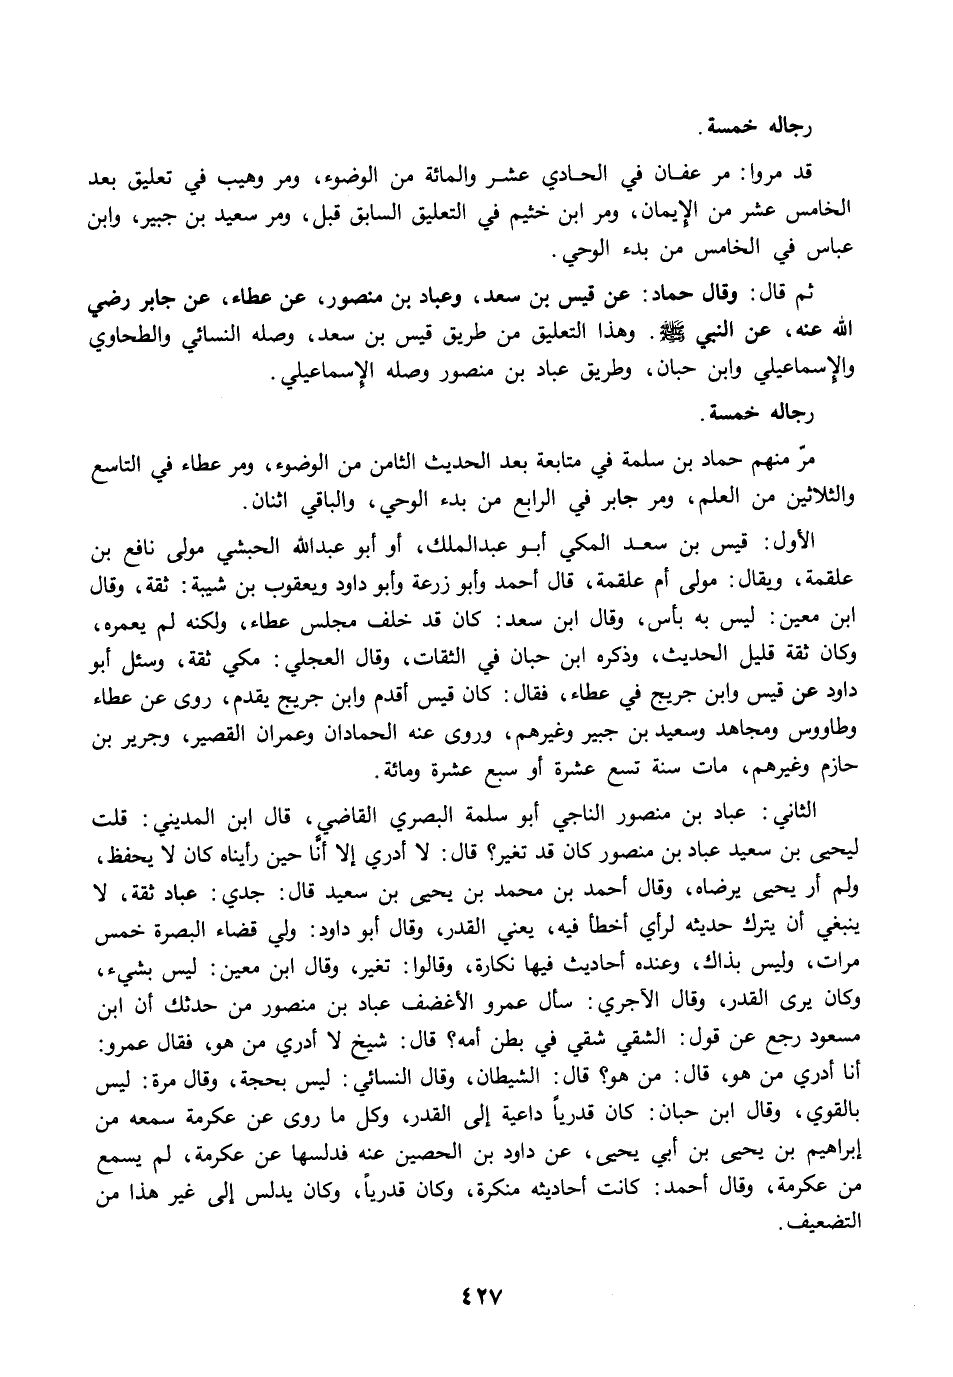 رجاله خمسة.
قد مروا: مر عفان في الحادي عشر والمائة من الوضوء، ومر وهيب في تعليق بعد
الخامس عشر من الإيمان، ومر ابن خثيم في التعليق السابق قبل، ومر سعيد بن جبير، وابن
عباس في الخامس من بدء الوحي.
ثم قال: وقال حماد: عن قيس بن سعد، وعباد بن منصور، عن عطاء، عن جابر رضي
الله عنه، عن النبي ﷺ. وهذا التعليق من طريق قيس بن سعد، وصله النسائي والطحاوي
والإسماعيلي وابن حبان، وطريق عباد بن منصور وصله الإسماعيلي.
رجاله خمسة.
مرّ منهم حماد بن سلمة في متابعة بعد الحديث الثامن من الوضوء، ومر عطاء في التاسع
والثلاثين من العلم، ومر جابر في الرابع من بدء الوحي، والباقي اثنان.
الأول: قيس بن سعد المكي أبو عبدالملك، أو أبو عبدالله الحبشي مولى نافع بن
علقمة، ويقال: مولى أم علقمة، قال أحمد وأبو زرعة وأبو داود ويعقوب بن شيبة: ثقة، وقال
ابن معين: ليس به بأس، وقال ابن سعد: كان قد خلف مجلس عطاء، ولكنه لم يعمره،
وكان ثقة قليل الحديث، وذكره ابن حبان في الثقات، وقال العجلي: مكي ثقة، وسئل أبو
داود عن قيس وابن جريج في عطاء، فقال: كان قيس أقدم وابن جريج يقدم، روى عن عطاء
وطاووس ومجاهد وسعيد بن جبير وغيرهم، وروى عنه الحمادان وعمران القصير، وجرير بن
حازم وغيرهم، مات سنة تسع عشرة أو سبع عشرة ومائة.
الثاني: عباد بن منصور الناجي أبو سلمة البصري القاضي، قال ابن المديني: قلت
ليحيى بن سعيد عباد بن منصور كان قد تغير؟ قال: لا أدري إلا أنَّا حين رأيناه كان لا يحفظ،
ولم أر يحيى يرضاه، وقال أحمد بن محمد بن يحيى بن سعيد قال: جدي: عباد ثقة، لا
ينبغي أن يترك حديثه لرأي أخطأ فيه، يعني القدر، وقال أبو داود: ولي قضاء البصرة خمس
مرات، وليس بذاك، وعنده أحاديث فيها نكارة، وقالوا: تغير، وقال ابن معين: ليس بشيء،
وكان يرى القدر، وقال الآجري: سأل عمرو الأغضف عباد بن منصور من حدثك أن ابن
مسعود رجع عن قول: الشقي شقي في بطن أمه؟ قال: شيخ لا أدري من هو، فقال عمرو:
أنا أدري من هو، قال: من هو؟ قال: الشيطان، وقال النسائي: ليس بحجة، وقال مرة: ليس
بالقوي، وقال ابن حبان: كان قدرياً داعية إلى القدر، وكل ما روى عن عكرمة سمعه من
إبراهيم بن يحيى بن أبي يحيى، عن داود بن الحصين عنه فدلسها عن عكرمة، لم يسمع
من عكرمة، وقال أحمد: كانت أحاديثه منكرة، وكان قدرياً، وكان يدلس إلى غير هذا من
التضعيف.
٤٢٧